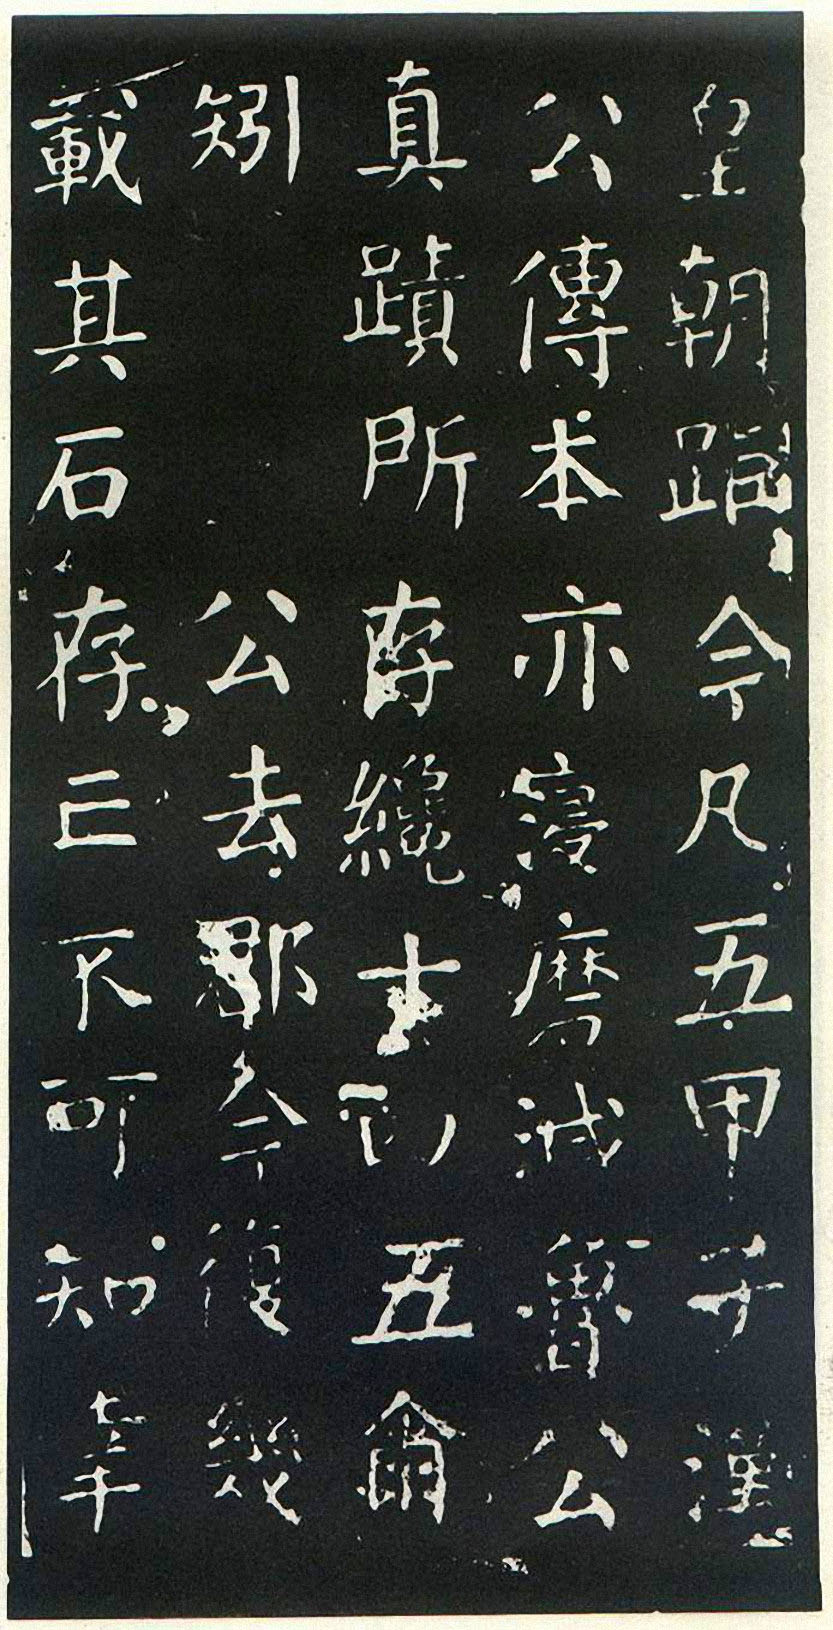 皇朝距今凡五甲子漢
公傳本亦寖磨滅魯公
真蹟所存纔十四五爾
矧公去郡今後幾
載其石存亡不可知幸